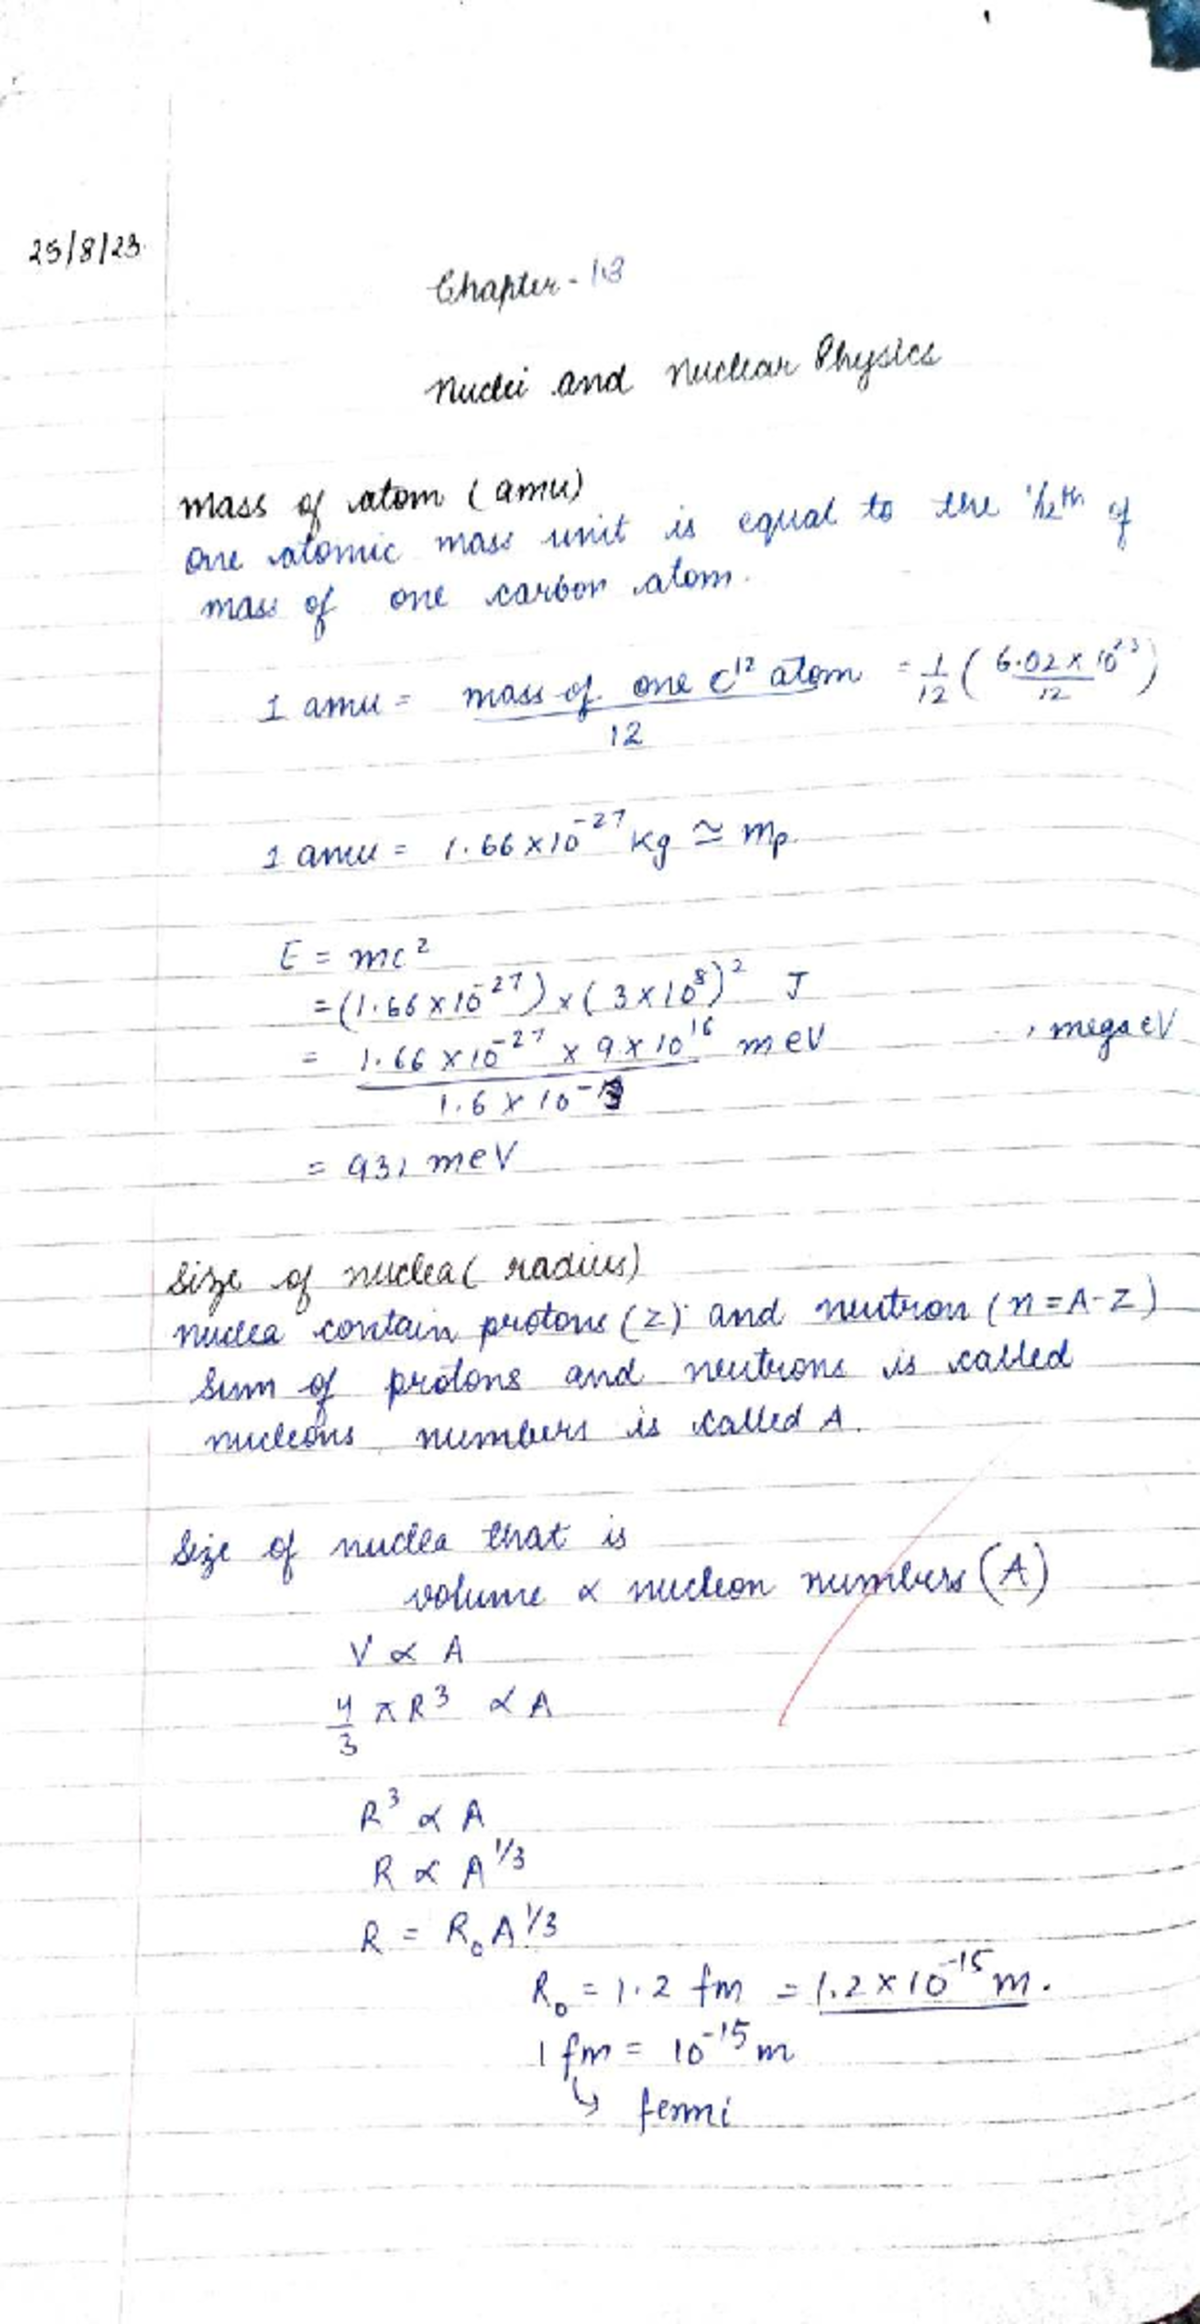 25/8/23
Chapter - 13
Nuclei and Nuclear Physics
mass of atom (amu)
One atomic mass unit is equal to the 1/12th of
mass of one carbon atom.
1 amu = mass of one C¹² atom / 12 = 1/12 ( 6.02 × 10²³ / 12 )
1 amu = 1.66 × 10⁻²⁷ kg ≃ mp.
E = mc²
= (1.66 × 10⁻²⁷) × (3 × 10⁸)² J
= 1.66 × 10⁻²⁷ × 9 × 10¹⁶ / 1.6 × 10⁻¹³ meV , mega eV
= 931 meV
Size of nuclea ( radius)
nuclea contain protons (Z) and neutron (n = A - Z)
Sum of protons and neutrons is called
nucleons numbers is called A.
Size of nuclea that is
volume ∝ nucleon numbers (A)
V ∝ A
4/3 π R³ ∝ A
R³ ∝ A
R ∝ A^1/3
R = R₀ A^1/3
R₀ = 1.2 fm = 1.2 × 10⁻¹⁵ m.
1 fm = 10⁻¹⁵ m
↳ fermi